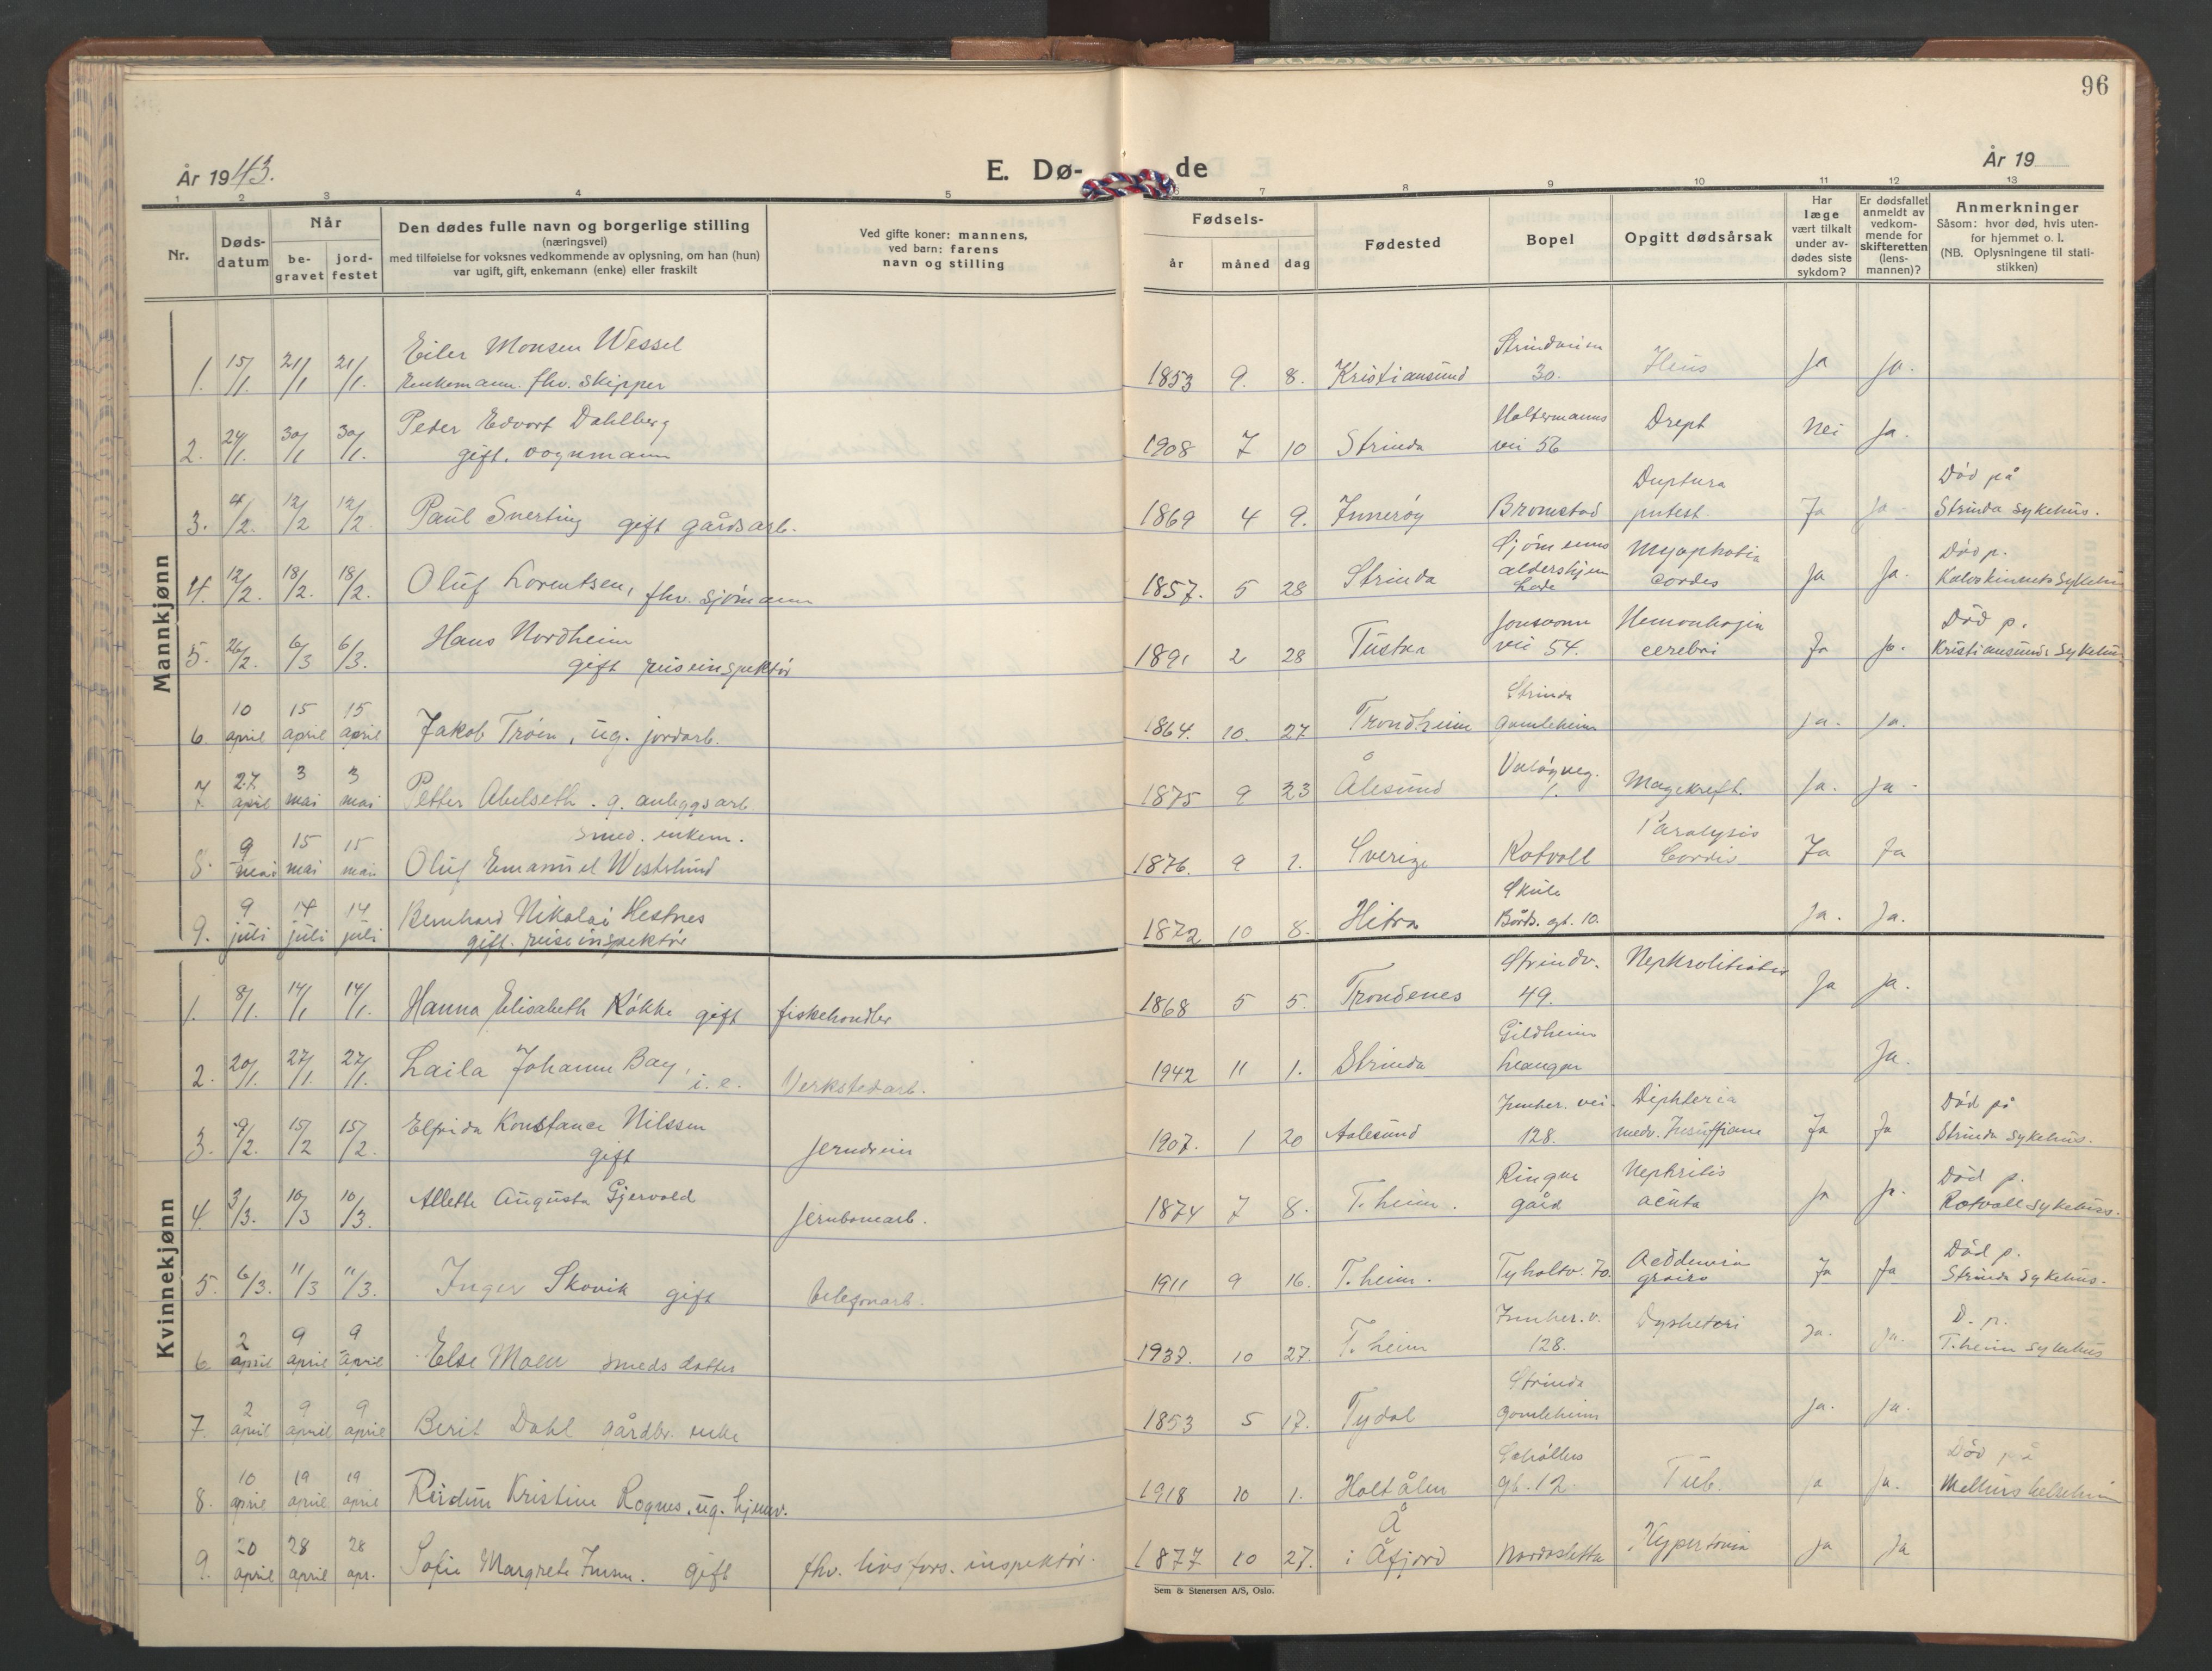 96
År 1943.
E. Dø-
de
År 19
1 2 3 4 5
6 7 8 9 10 11 12 13
Nr.
Døds-
datum
Når
be-
gravet
jord-
festet
Den dødes fulle navn og borgerlige stilling
(næringsvei)
med tilføielse for voksnes vedkommende av oplysning, om han (hun)
var ugift, gift, enkemann (enke) eller fraskilt
Ved gifte koner: mannens,
ved barn: farens
navn og stilling
Fødsels-
år måned dag
Fødested
Bopel
Opgitt dødsårsak
Har
læge
vært tilkalt
under av-
dødes siste
sykdom?
Er dødsfallet
anmeldt av
vedkom-
mende for
skifteretten
(lens-
mannen)?
Anmerkninger
Såsom: hvor død, hvis uten-
for hjemmet o. l.
(NB. Oplysningene til stati-
stikken)
Mannkjønn
1. 15/1. 21/1 21/1. Eiler Monsen Wessel
Enkemann. fhv. skipper
1853 9. 8. Kristiansund 30. Ja ja.
2. 24/1. 30/1 30/1. Peder Edvart Dahlberg
gift. vognmann
1908 7 10 Strinda Holtermanns
vei 56 Drept Nei Ja.
3. 4/2. 12/2 12/2 Paul Snerting gift gårdsarb.
1869 4 9. Inderøy Bromstad Ja Ja
Død på
Strinda sykehus.
4. 12/2. 18/2. 18/2. Oluf Lorentsen, fhv. sjømann
1857. 5 28 Strinda
aldershjem
Lade cordis ja Ja.
Død p.
5. 26/2. 6/3 6/3. Hans Nordheim
gift reiseinspektør
1891 2 28 Tustna
vei 54. cerebri Ja Ja.
Død p.
Kristiansunds sykehus
6. 10 april 15 april 15 april Jakob Trøen, ug. jordarb.
1864. 10. 27 Trondheim Strinda
gamleheim ja. ja.
7 27. april 3 mai 3 mai Petter Abelseth. g. anleggsarb.
1875 9 23 Ålesund 1. Magekreft. Ja. Ja.
smed. enkem.
8. 9 mai 15 mai 15 mai Oluf Emanuel Westerlund
1876. 9 1. Sverige Rotvoll Paralysis
Cordis Ja Ja
9. 9 juli 14 juli 14 juli Bernhard Nikolai Hestnes
gift. reiseinspektør
1872 10 8. Hitra Skule
Bårds. gt. 10. Ja. Ja.
Kvinnekjønn
1. 8/1. 14/1 14/1. Hanna Elisabeth Røkke gift fiskehandler
1868 5 5. Trondenes Strindv.
49. Ja ja.
2. 20/1. 27/1. 27/1. Laila Johanne Bay, i.e. Verkstedarb.
1942 11 1. Strinda Gildheim
Leangen Ja.
3. 9/2. 15/2 15/2. Elfrida Konstance Nilssen
gift
1907. 1 20 Aalesund Innher. vei.
128. Diphteria
Ja Ja
Død på
Strinda sykehus.
4. 3/3. 10/3 10/3. Allette Augusta Gjervold
jernbanearb.
1874 7 8. T.heim. Ringve
gård Nephritis
acuta ja ja.
Død p.
Rotvoll sykehus.
5. 6/3. 11/3 11/3. Inger Skovik gift telefonarb.
1911 9 16. T.heim. Tyholtv. 70. Ja Ja
Død p.
Strinda sykehus.
6 2 april 9 april 9 april Else Moen smeds datter
1937. 10 27. T.heim Innher. v.
128. Ja. Ja.
D. p.
T.heim sykehus
7. 2 april 9 april 9 april Berit Dahl gårdbr. enke
1853 5 17. Tydal Strinda
gamleheim ja. ja.
8. 10 april 19 april 19 april Reidun Kristine Rognes. ug. hjemv.
1918 10 1. Holtålen
gt. 12. Tub. ja ja.
Død på
9. 20 april 28 april 28 apr. Sofie Margrete gift fhv. livsfors. inspektør.
1877 10 27. Å
i Åfjord Nardosletta Hypertonia ja Ja
Sem & Stenersen A/S, Oslo.